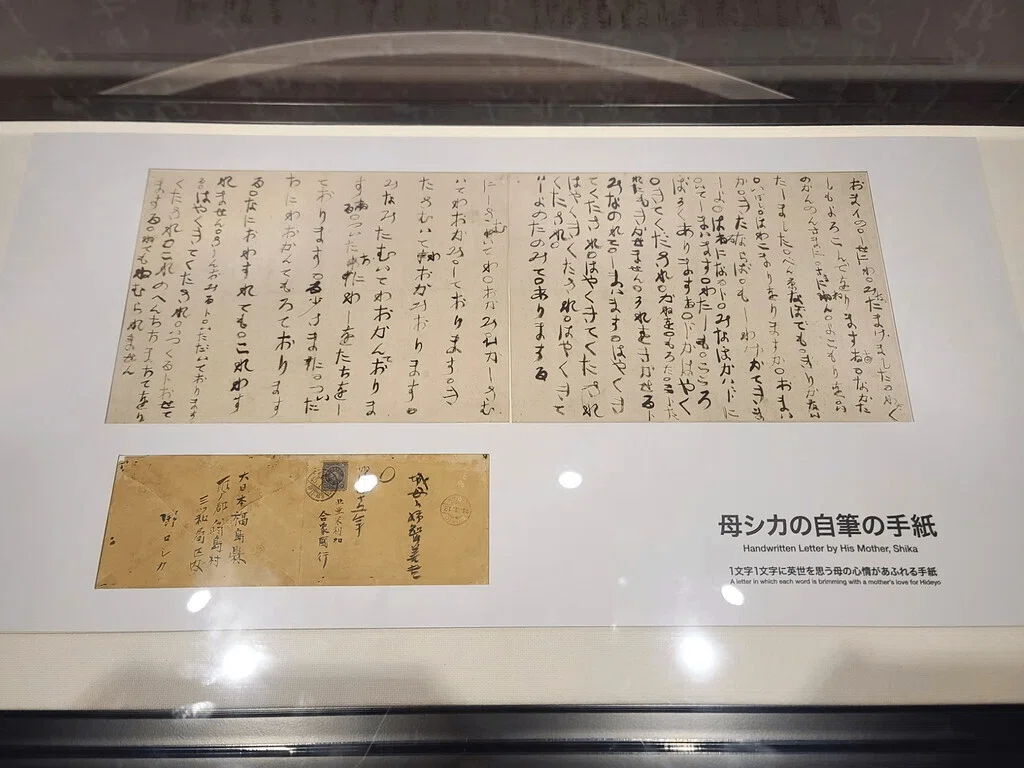 おまイの。しせにわみなたまけました。わたく
しもよろこんでをりまする。なかた
のかんのんさまに。さまにねん。よこもりを。いた
しました。べん京なぼでも。きりかない
。いぼし。ほわこまりをりますか。おまい
か。きたならば。もしわけかてきま
しよ。はるになるト。みなほかいドに
。いてしまいます。わたしも。こころ
ぼそくありまする。ドカはやく
。きてくたされ。かねを。もろた。こト
たれにもきかせません。それをきかせるト
みなのれて。しまいます。はやくき
てくたされ。はやくきてくたされ
はやくきてくたされ。はやくきて
くたされ。
いしよのたのみて。ありまする
にしさむいてわ。おかみひかしさむ
いてわおかみ。しております。き
たさむいてわおかみおります
みなみたむいてわおかんておりま
する。ついたちにわしをたちをし
ております。ゐ少さまに。ついた
ちにわおかんてもろております
る。なにおわすれても。これわす
れません。さしんおみるト。いただいております
る。はやくきてくたされ。いつくるトおせて
くたされ。これのへんちちまちてをり
まする。ねてもねむられません
大日本福島縣
翁島村
三ツ和局区内
野口シカ
母シカの自筆の手紙
Handwritten Letter by His Mother, Shika
1文字1文字に英世を思う母の心情があふれる手紙
A letter in which each word is brimming with a mother's love for Hideyo